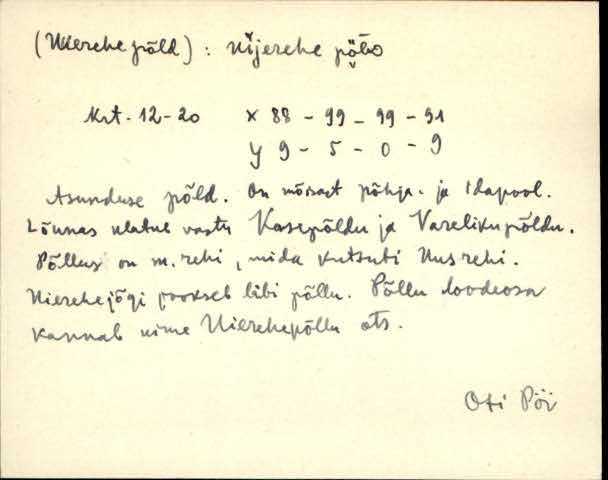 (Uierehe põld) : uijerehe põlo
Krt. 12-20 x 88 - 99 - 99 - 91
y 9 - 5 - 0 - 9
Asunduse põld. On mõisast põhja- ja idapool.
Lõunas ulatub vastu Kasepõldu ja Varelikupõldu.
Põllus on m. rehi, mida kutsuti Uus rehi.
Uierehejõgi jookseb läbi põllu. Põllu loodeosa
kannab nime Uierehepõllu ots.
Oti Pöi